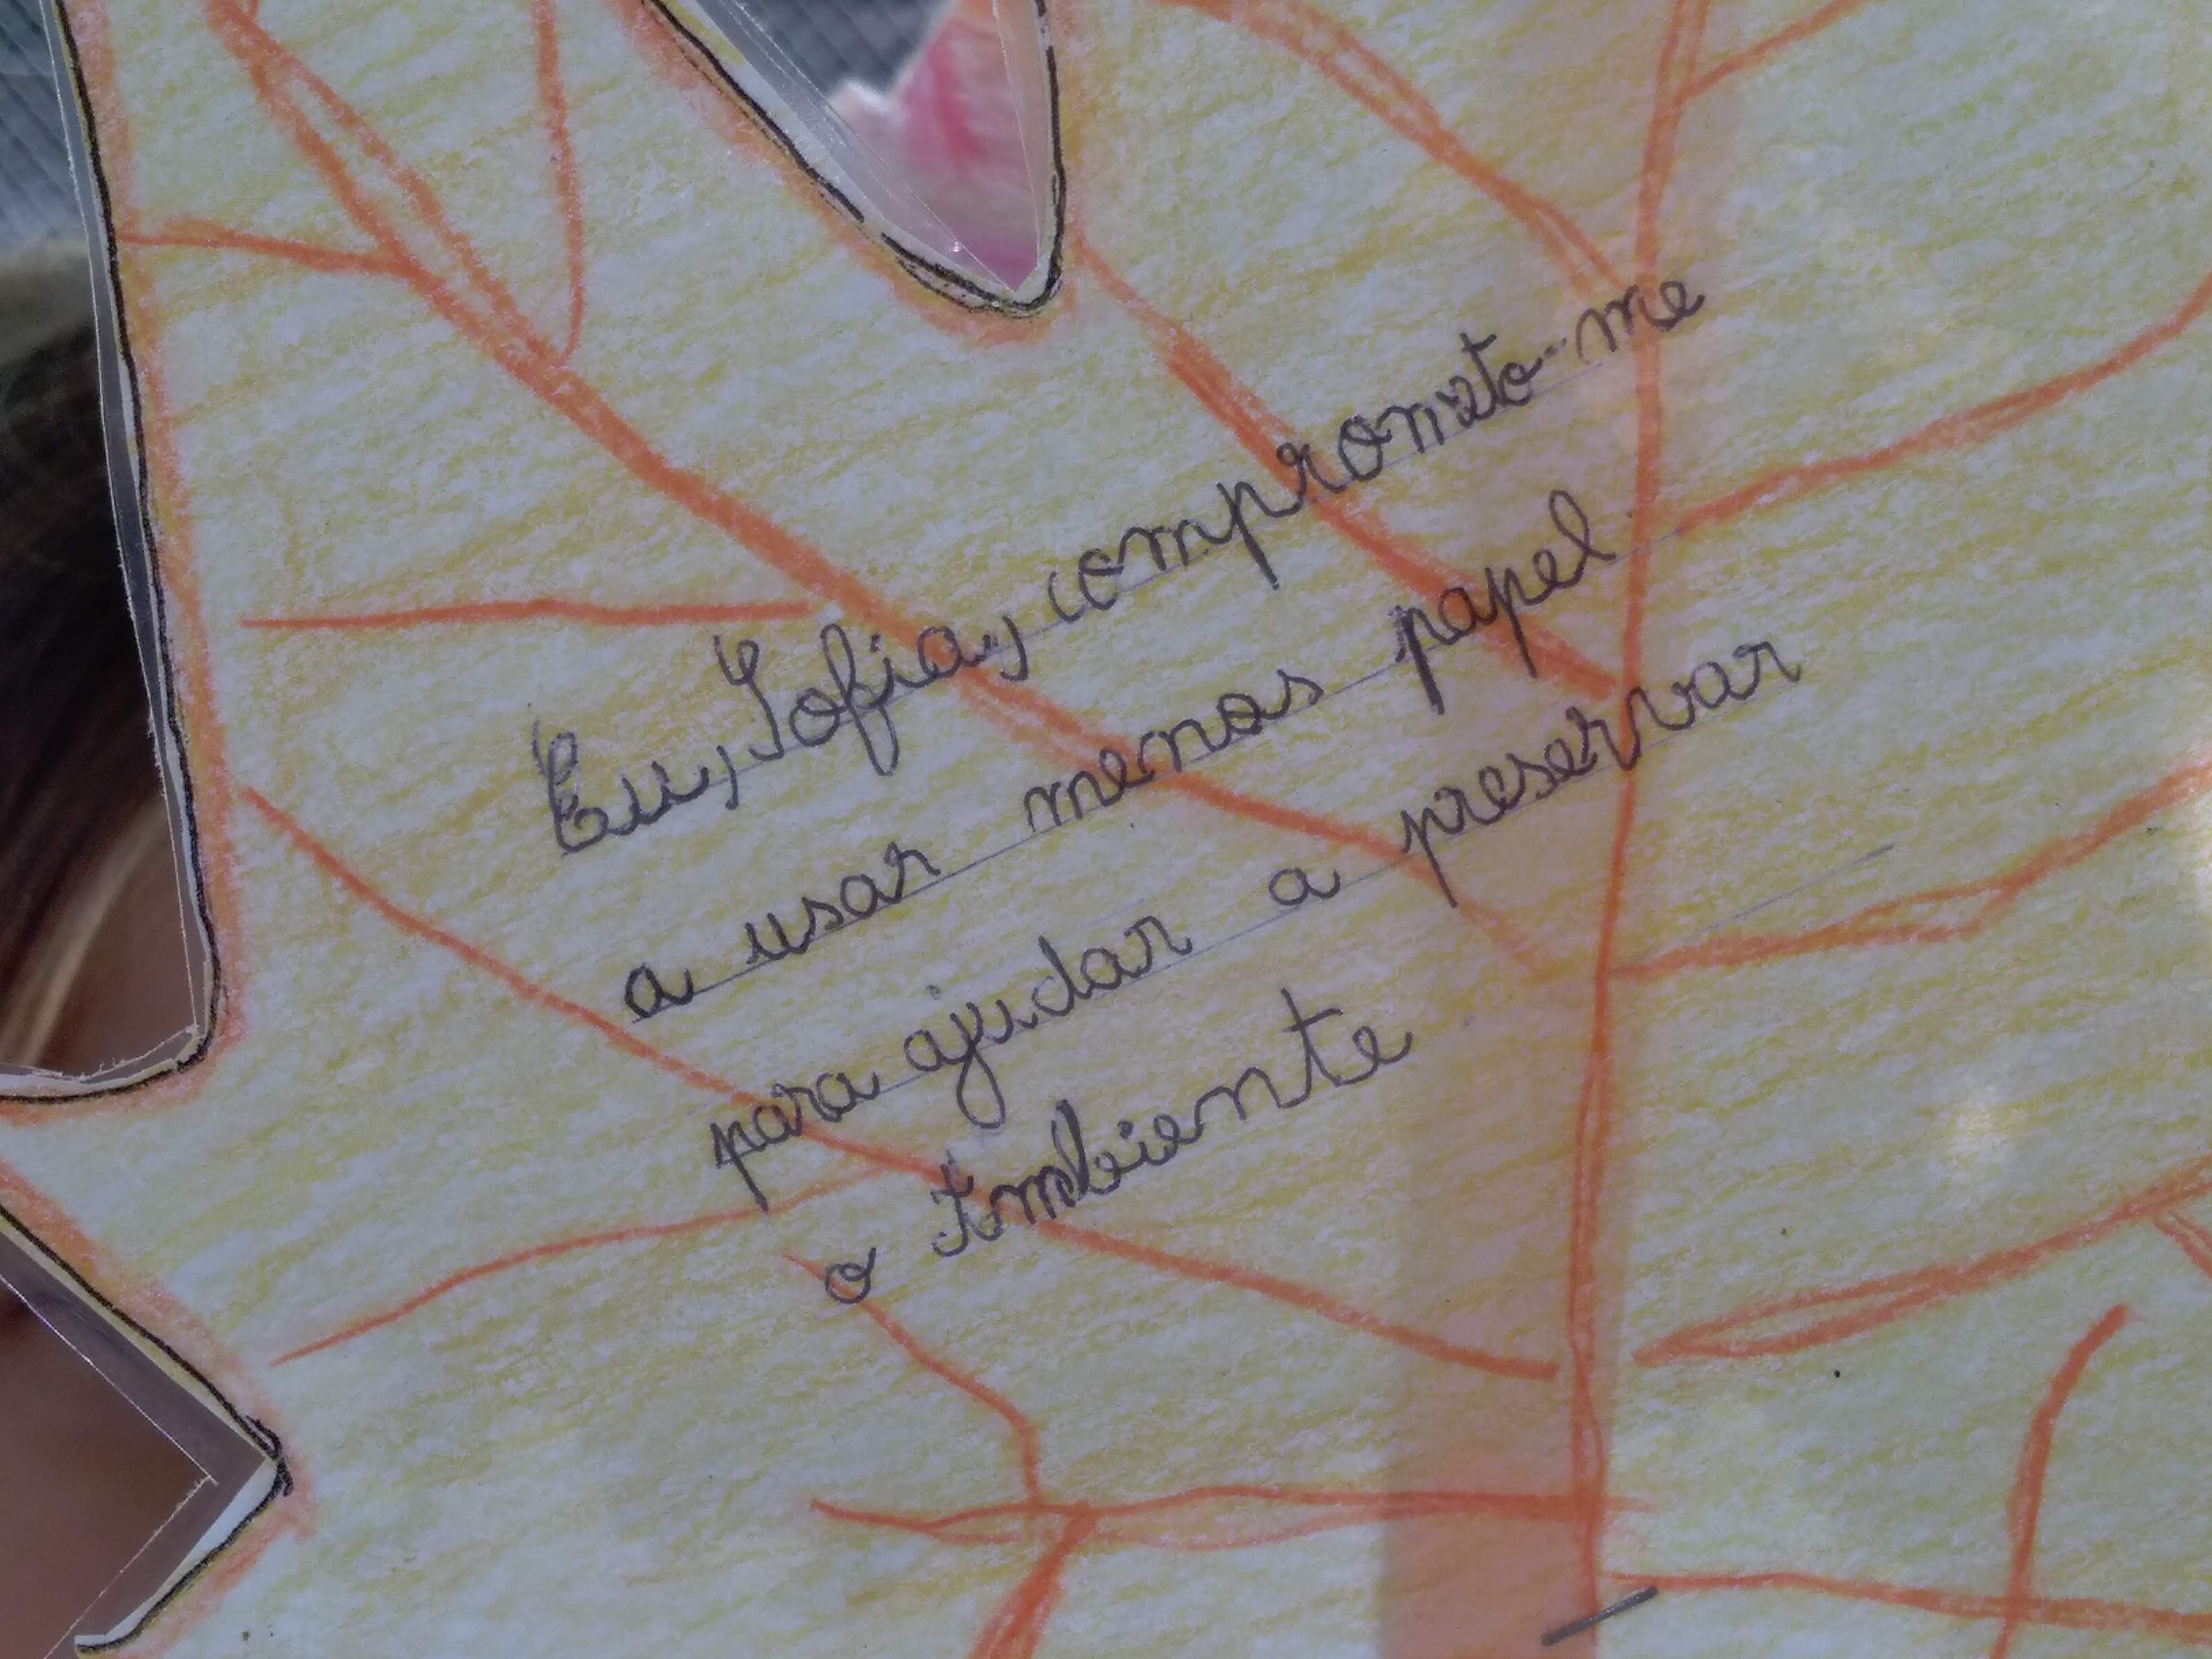 Eu, Sofia, comprometo-me
a usar menos papel
para ajudar a preservar
o Ambiente